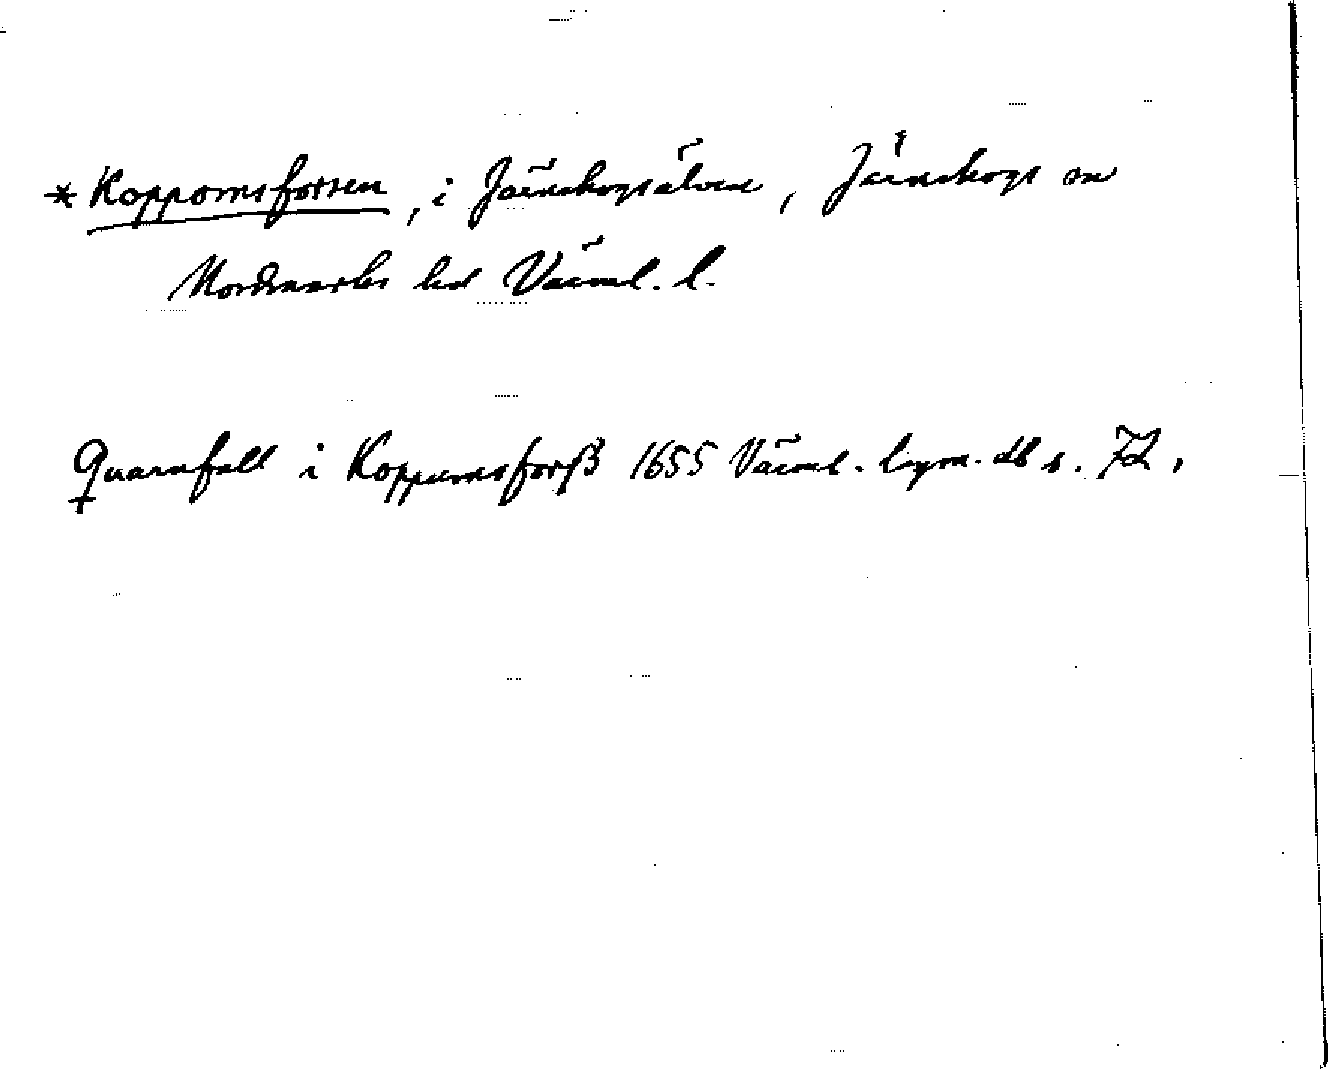 * Koppomsforsen, i Järnskogsälven, Järnskogs sn
Nordmarks hd Värml. l.
Quarnfall i Koppumsforß 1655 Värml. lagm. db s. 72.